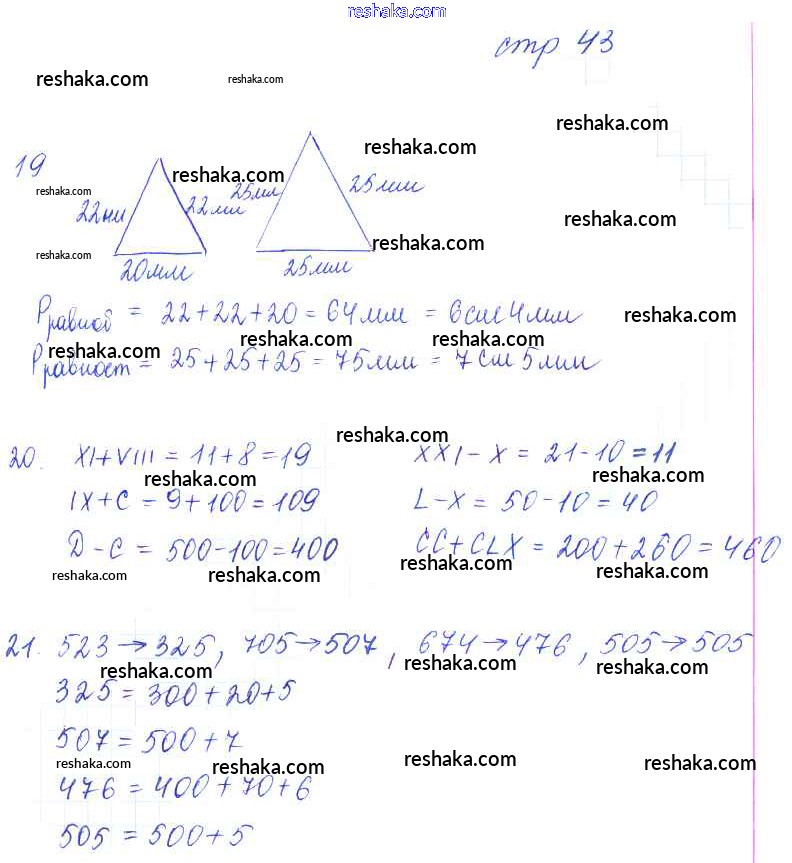 reshaka.com
стр 43
reshaka.com reshaka.com
reshaka.com
reshaka.com
19
reshaka.com
reshaka.com
22мм 22мм 25мм 25мм
reshaka.com
reshaka.com
reshaka.com
20мм 25мм
Рравноб = 22+22+20 = 64мм = 6см 4мм
reshaka.com
reshaka.com reshaka.com reshaka.com
Рравност = 25+25+25 = 75мм = 7см 5мм
reshaka.com
20. XI+VIII = 11+8=19 XXI-X = 21-10=11
reshaka.com reshaka.com
IX+C = 9+100=109 L-X = 50-10=40
D-C = 500-100=400 CC+CLX = 200+260=460
reshaka.com reshaka.com reshaka.com reshaka.com
21. 523→325, 705→507, 674→476, 505→505
reshaka.com reshaka.com reshaka.com
325 = 300+20+5
507 = 500+7
reshaka.com reshaka.com reshaka.com reshaka.com
476 = 400+70+6
505 = 500+5